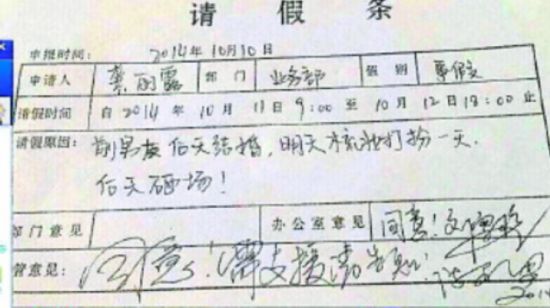 请假条
申报时间: 2014年10月10日
申请人 龚丽露 部门 业务部 假别 事假
请假时间 自 2014 年 10 月 11日 9:00 至 10 月 12日 18:00 止
请假原因: 前男友后天结婚,明天梳妆打扮一天.
后天砸场!
部门意见 办公室意见 同意!
管意见: 同意!需支援请告知
2014